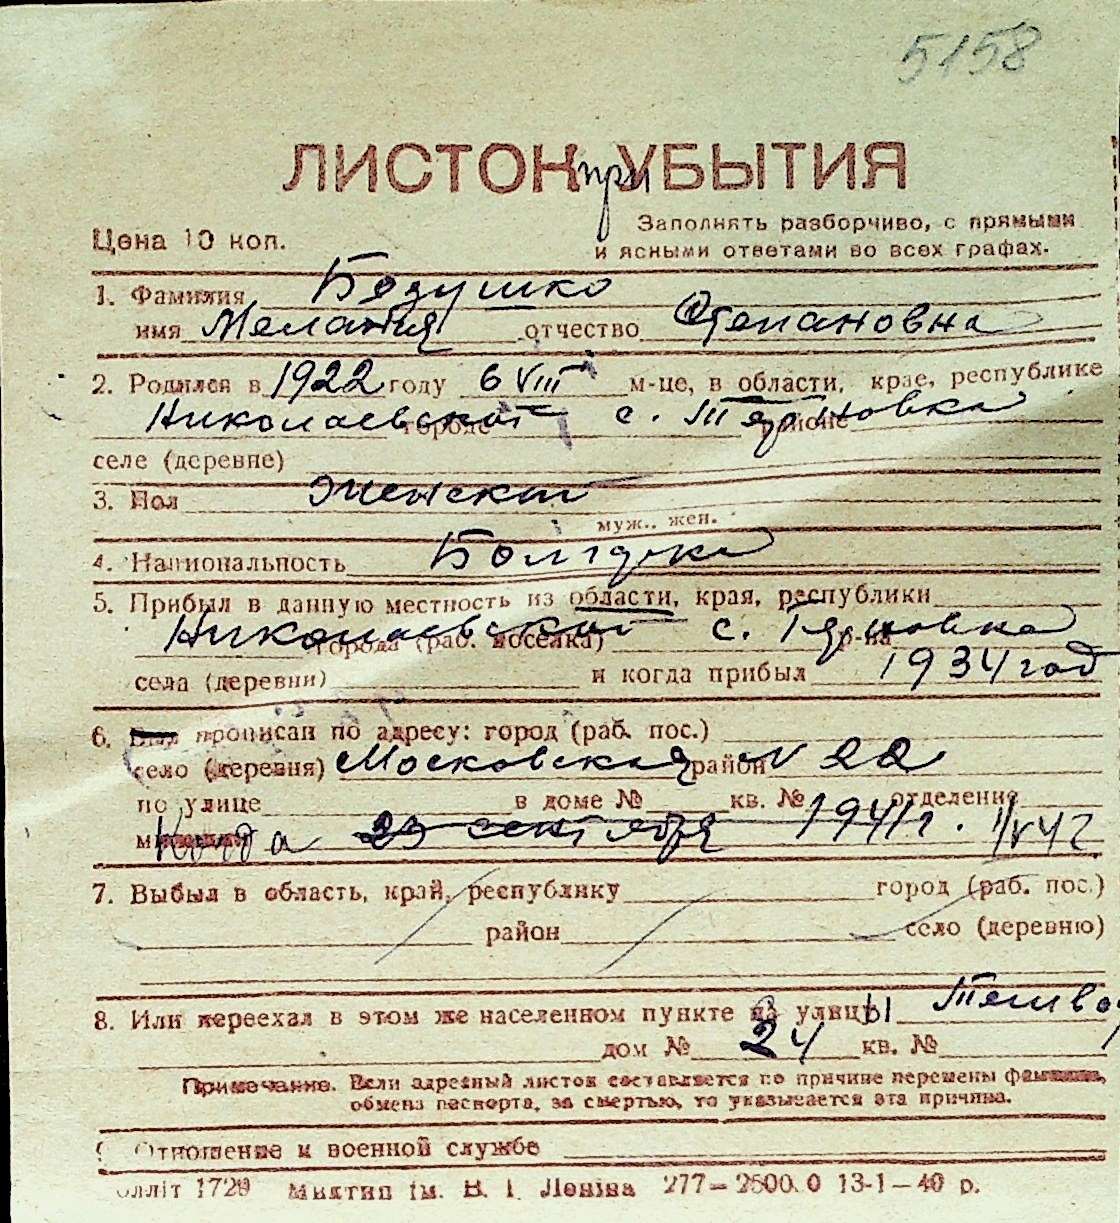 5158
ЛИСТОК при УБЫТИЯ
Цена 10 коп.
Заполнять разборчиво, с прямыми
и ясными ответами во всех графах.
1. Фамилия Безушко
имя Мелания отчество Степановна
2. Родился в 1922 году 6 VIII м-це, в области, крае, республике
Николаевской городе с. Терновка районе
селе (деревне)
3. Пол женский
муж., жен.
4. Национальность Болгарка
5. Прибыл в данную местность из области, края, республики
Николаевской города (раб. поселка) с. Терновка р-на
села (деревни) и когда прибыл 1934 год
6. Был прописан по адресу: город (раб. пос.)
село (деревня) Московская район N 22
по улице в доме № кв. № отделение
Когда 23 сентября 1941 г.
7. Выбыл в область, край, республику город (раб. пос.)
район село (деревню)
8. Или переехал в этом же населенном пункте из улицы
дом № 24 кв. №
Примечание. Если адресный листок составляется по причине перемены фамилии,
обмена паспорта, за смертью, то указывается эта причина.
Отношение к военной службе
олліт 1729 Миктип ім. В. І. Леніна 277—2500.0 13-1—40 р.